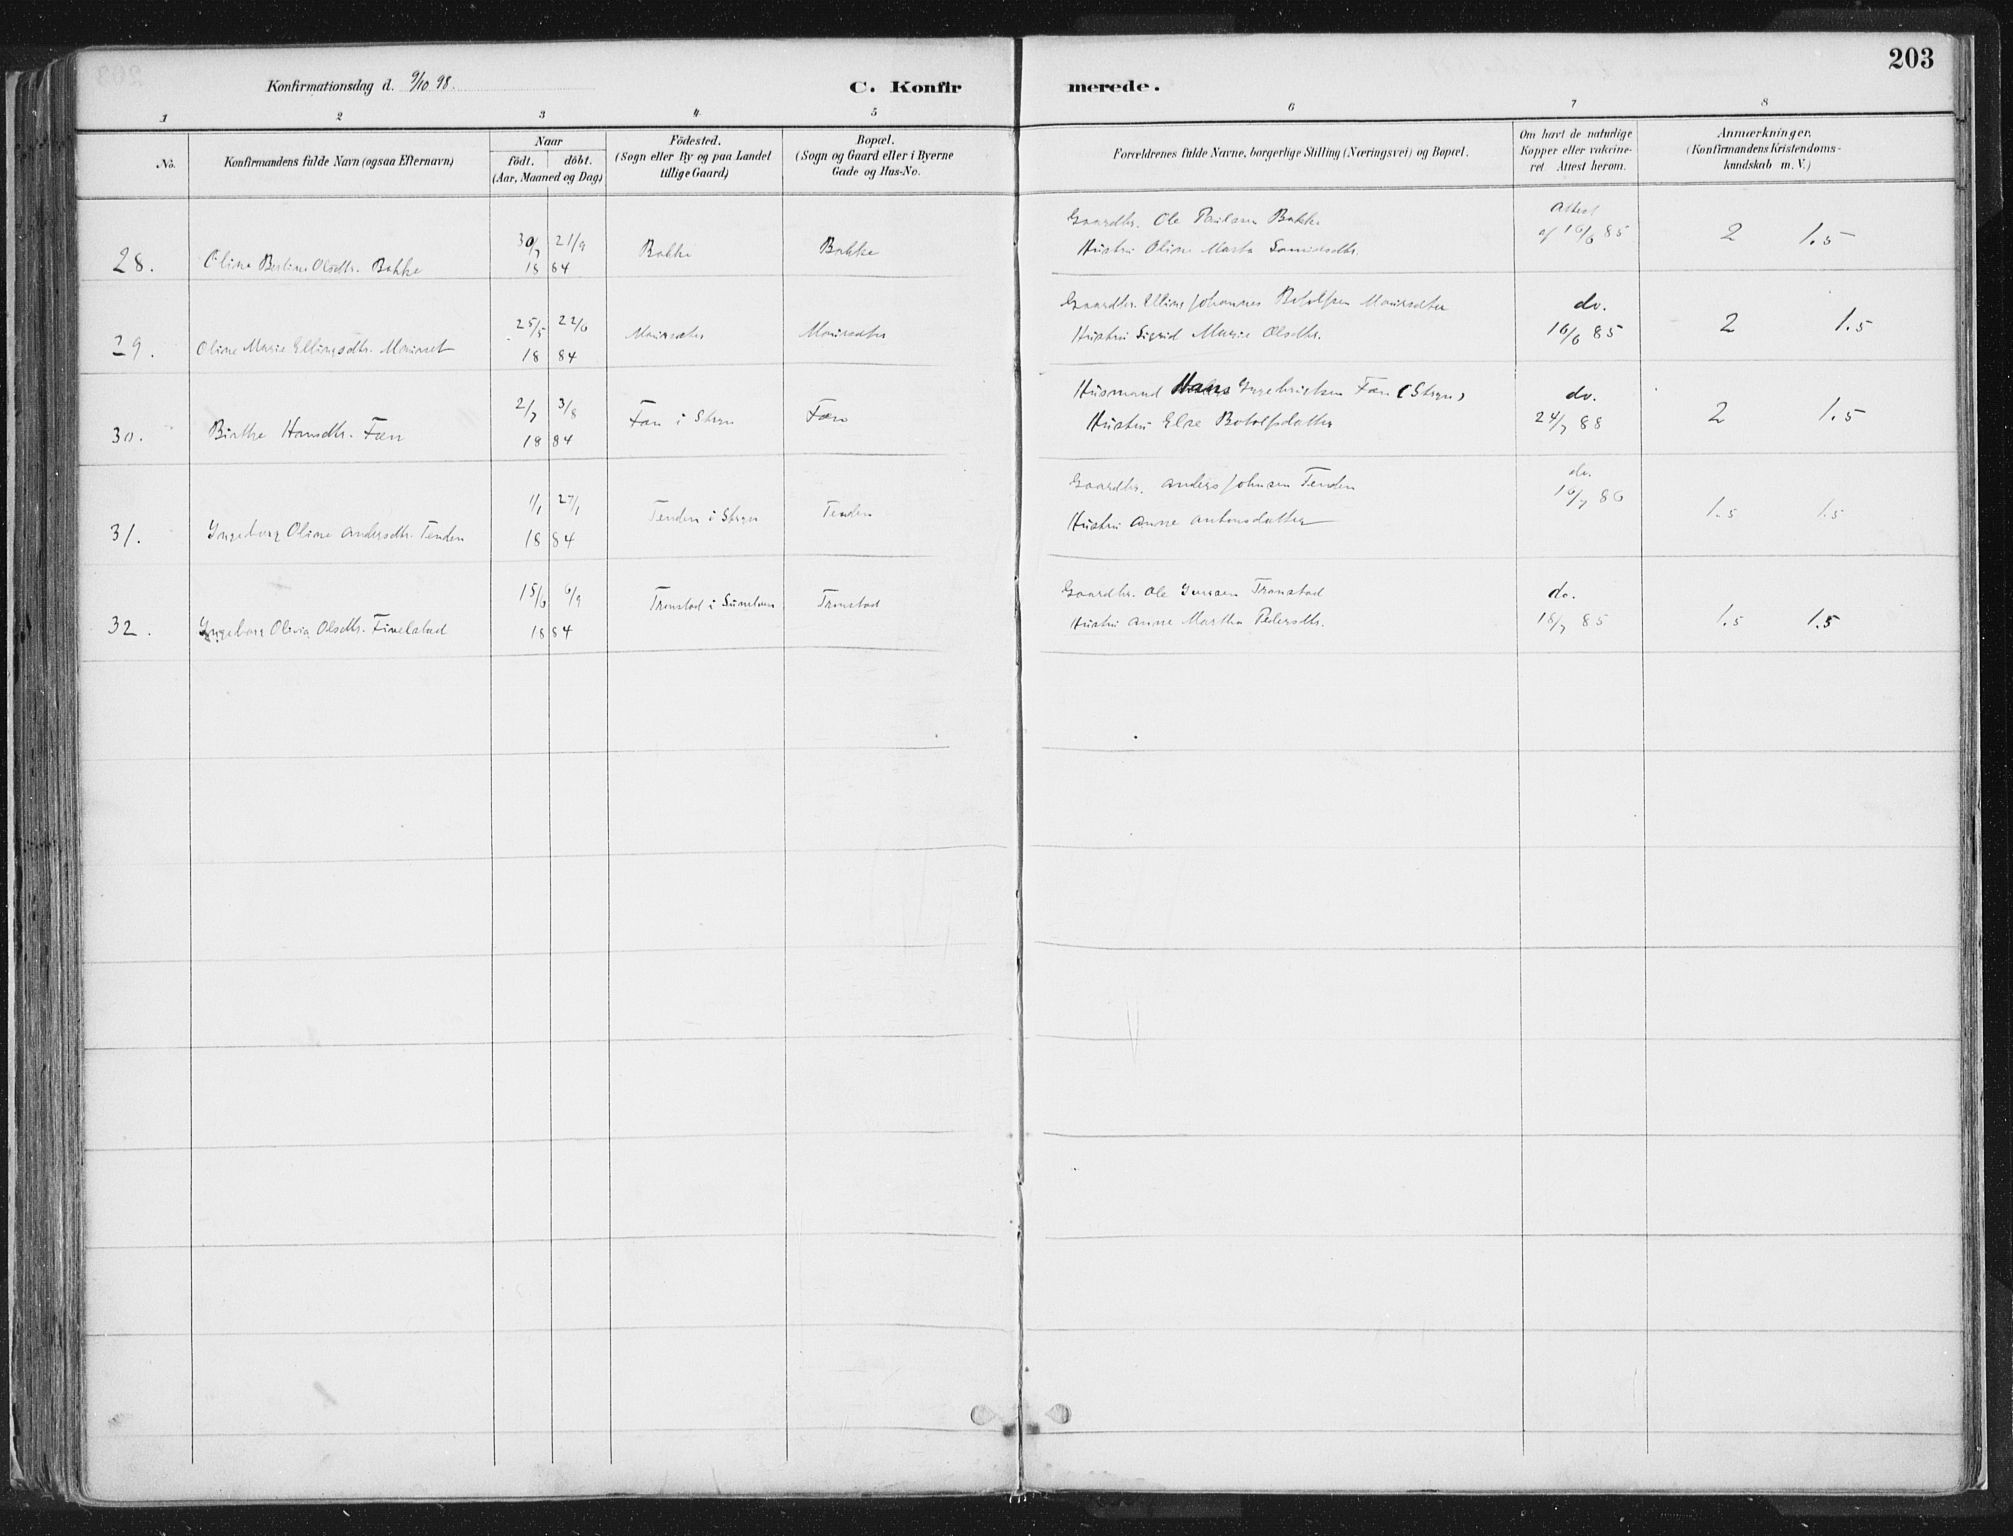 203
Konfirmationsdag d. 9/10 98.
C. Konfirmerede.
1 2 3 4 5 6 7 8
No.
Konfirmandens fulde Navn (ogsaa Efternavn)
Naar
födt. döbt.
(Aar, Maaned og Dag)
Födested.
(Sogn eller By og paa Landet
tillige Gaard)
Bopæl.
(Sogn og Gaard eller i Byerne
Gade og Hus-No.
Forældrenes fulde Navne, borgerlige Stilling (Næringsvei) og Bopæl.
Om havt de naturlige
Kopper eller vakcine-
ret. Attest herom.
Anmærkninger.
(Konfirmandens Kristendoms-
kundskab m. V.)
28. Oline Berline Olsdtr. Bakke
30/7 21/9
18 84
Bakke
Bakke
Gaardbr. Ole Paulsen Bakke
Hustru Oline Marta
Attest
af 16/6 85
2 1.5
29. Oline Marie Ellingsdtr. Maurset
25/5 22/6
18 84
Maursæter
Maursæter
Gaardbr. Elling Johannes Botolfsen Maursæter
Hustru Sigrid Marie Olsdtr.
do.
16/6 85
2 1.5
30. Birthe Hansdtr. Fæn
2/7 3/8
18 84
Fæn i Stryn
Fæn
Husmand Hans Ingebrigtsen Fæn (Stryn)
Hustru Else Botolfsdatter
do.
24/7 88
2 1.5
31. Ingeborg Oline Andersdtr. Tenden
1/1 27/1
18 84
Tenden i Stryn
Tenden
Gaardbr. Anders Johnsen Tenden
Hustru Anne Antonsdatter
do.
16/7 86
1.5 1.5
32. Ingeborg Olivia Olsdtr. Fivelstad
15/6 6/9
18 84
Tronstad i Sunelven
Tronstad
Gaardbr. Ole Jensen Tronstad
Hustru Anne Martha Pedersdtr.
do.
18/7 85
1.5 1.5